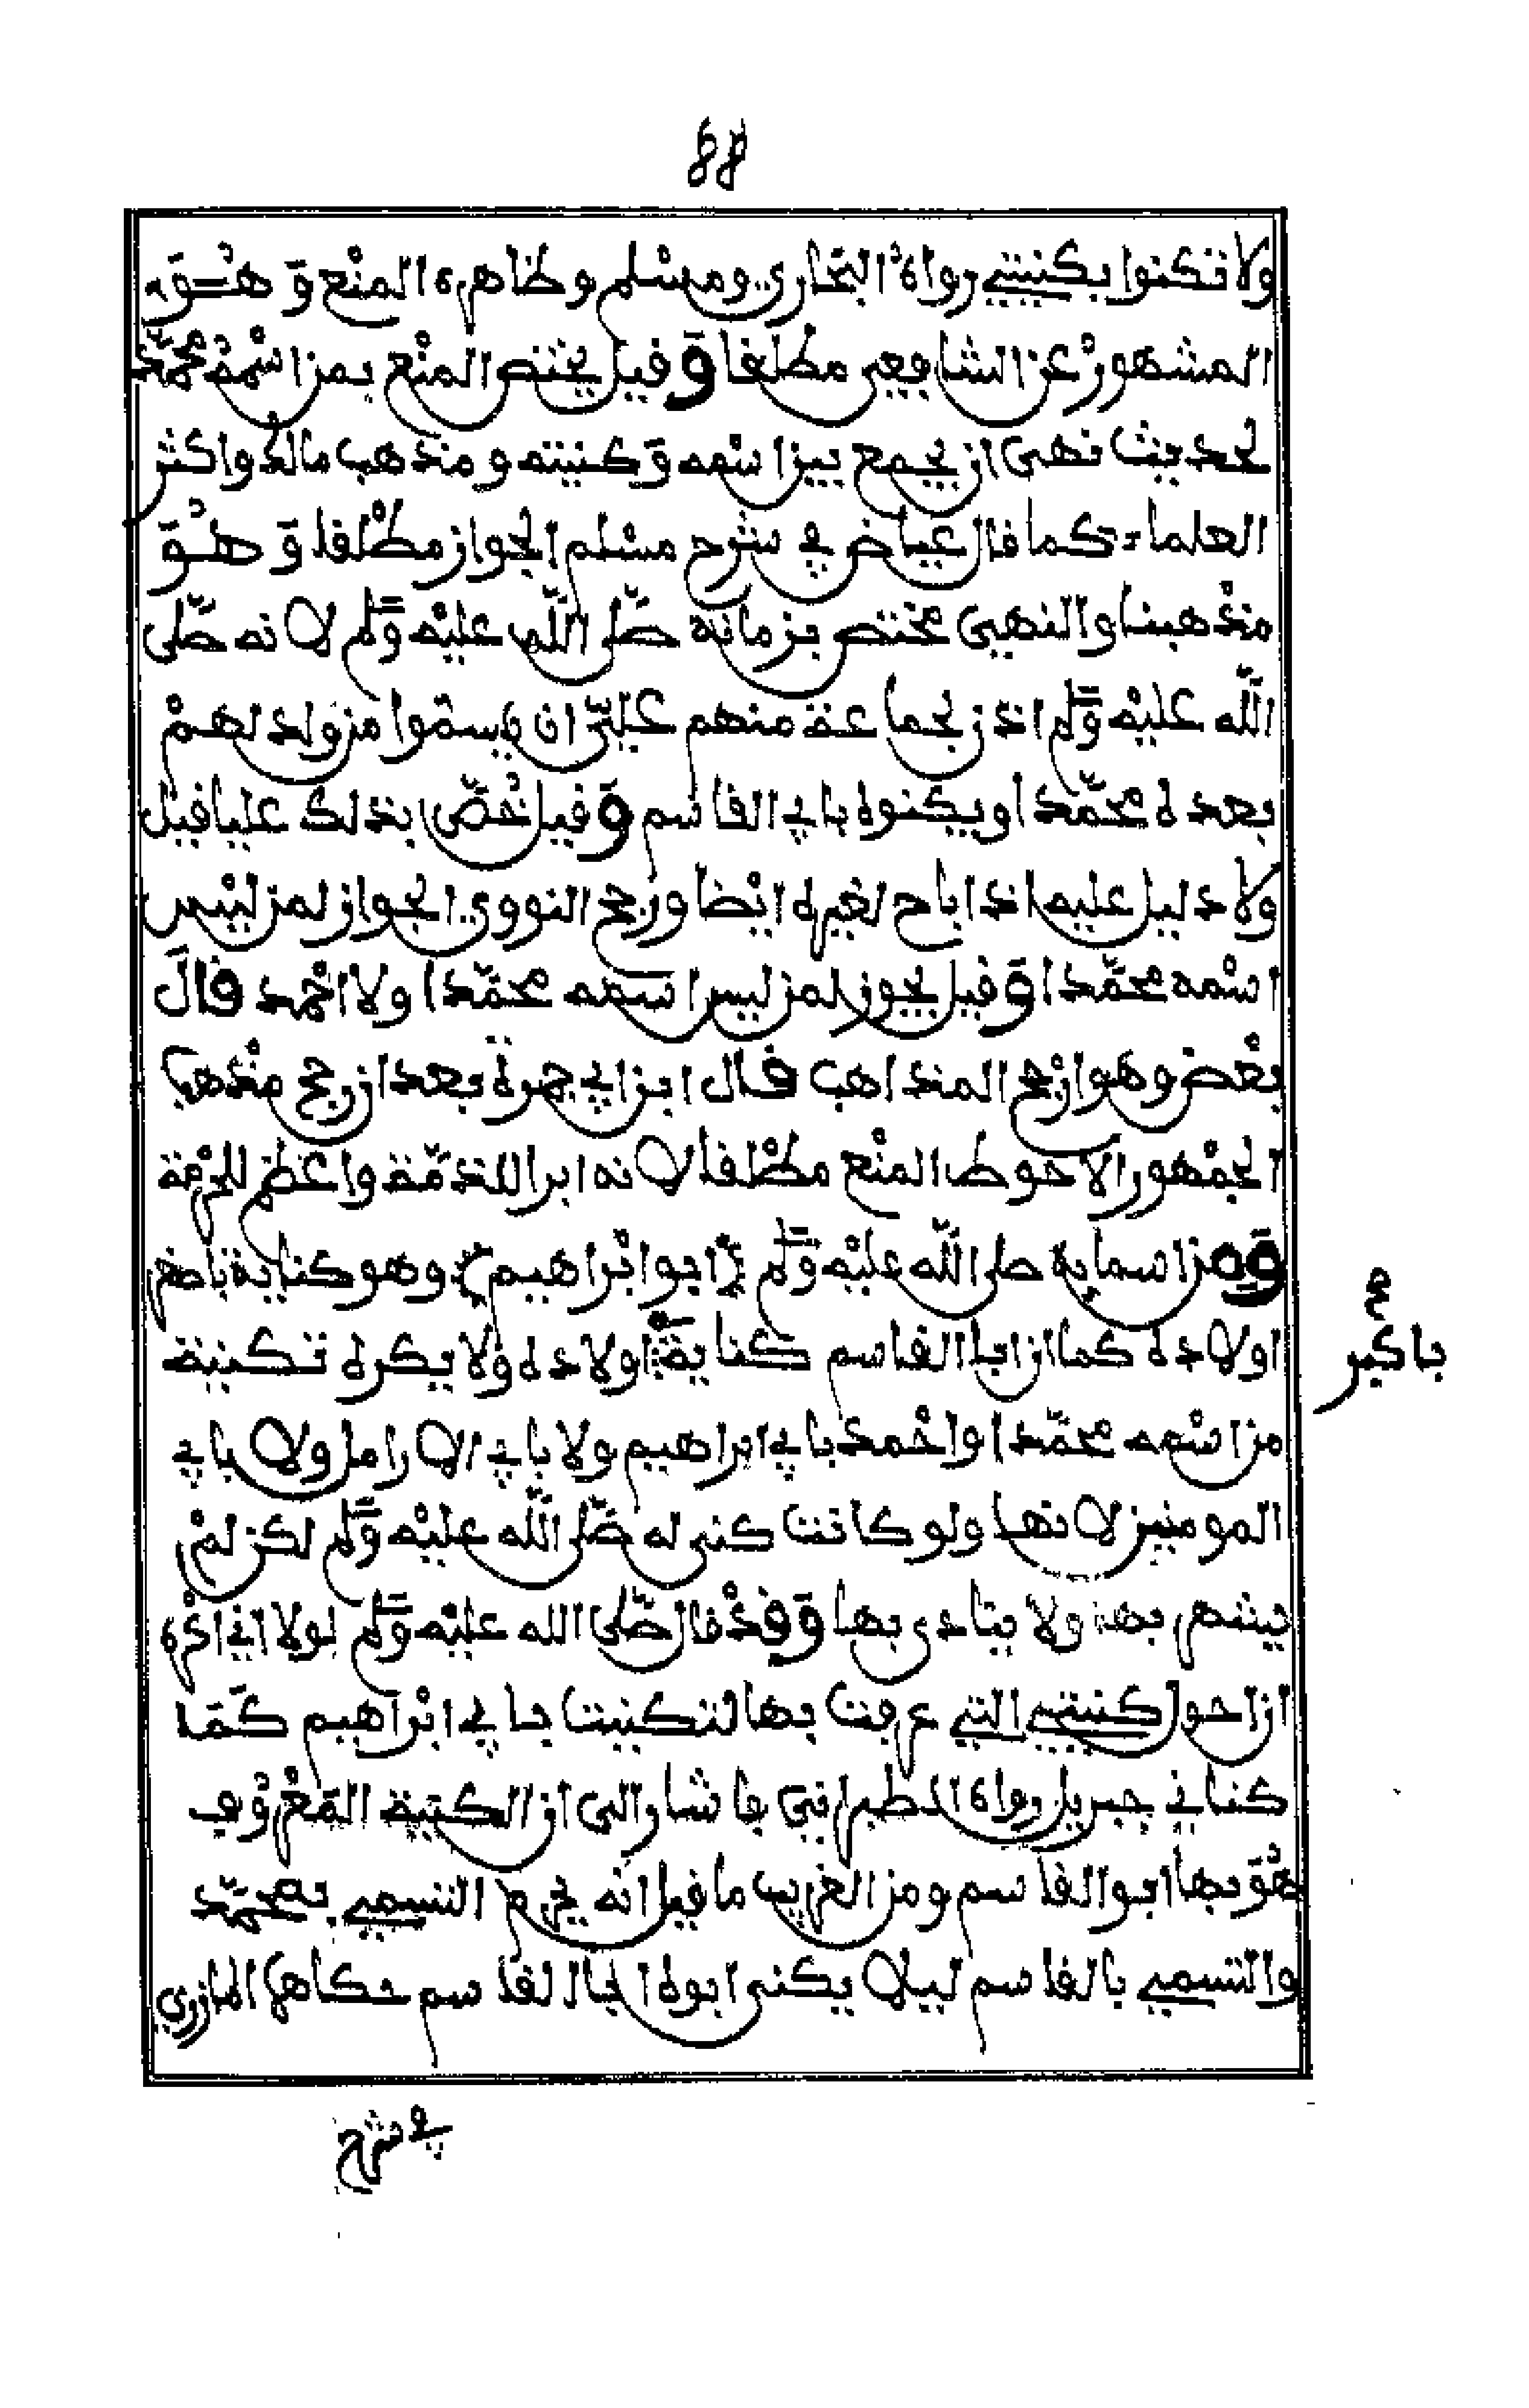 68
ولا تكنوا بكنيتي رواه البخاري ومسلم وظاهره المنع وَهُوَ
المشهور عن الشافعي مطلقا وَقيل يختص المنع بمن اسْمُهُ محمّد
لحديث نهى ان يجمع بين اسمه وَكنيته ومذهب مالك واكثر
العلماء كما قال عياض في شرح مسْلم الجواز مطْلقا وَهُوَ
مذهبنا والنهي مختص بزمانه صَلّى اللّه عليْه وَسَلّم لانه صَلّى
اللّه عليْه وَسَلّم اذن لجماعة منهم عليّ ان يسمّوا من ولد لهمْ
بعده محمّدا ويكنوه بابي القاسم وَقيل خُصّ بذلك عليا قيل
ولا دليل عليه اذ اباح لغيره ايْضا ورجح النووي الجواز لمن ليْس
اسْمه محمّدا وَقيل يجوز لمن ليس اسمه محمّدا ولا احْمد قَالَ
بعْض وهو ارْجح المذاهب قال ابن ابي جمرة بعد ان رجح مذْهب
الجمْهور الاحوط المنْع مطْلقا لانه ابرا للذمّة واعْظم للحرْمة
وَمن اسمايه صلى اللّه عليْه وَسَلّم ابو ابْراهيم وهو كناية باصغر
اولاده كما ان ابا القاسم كناية اولاده وَلا يكره تكنية
باكبر
من اسْمه محمّدا او احْمد بابي ابراهيم ولا بابي الارامل ولا بابي
المومنين لانها ولو كانت كنى له صَلّى اللّه عليْه وَسَلّم لكن لمْ
يشهر بها ولا ينادى بها وَقدْ قال صَلّى الله عليْه وَسَلّم لولا اني اكْره
ان احول كنيتي التي عرفت بها لتكنيت بابي ابْرَاهيم كَمَا
كناني جبريل رواه الطبراني فاشار الى ان الكنية المَعْرُوف
هُوَ بها ابو القاسم ومن الغريب ما قيل انه يحرم التسمي بمحَمّد
والتسمي بالقاسم ليلا يكنى ابوه ابا القاسم حكاها المازري
في شرح